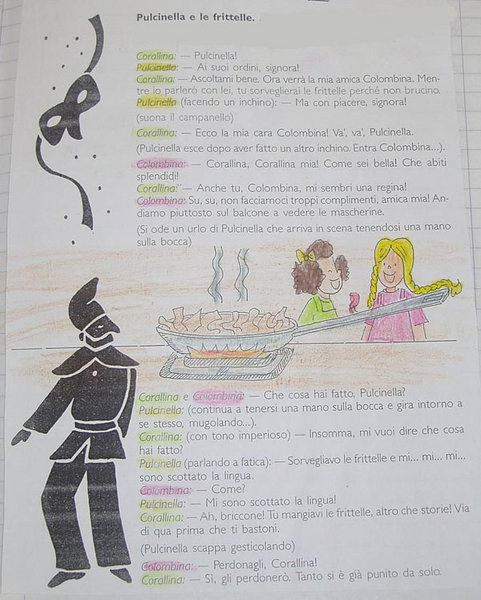 Pulcinella e le frittelle.
Corallina: — Pulcinella!
Pulcinella: — Ai suoi ordini, signora!
Corallina: — Ascoltami bene. Ora verrà la mia amica Colombina. Men-
tre io parlerò con lei, tu sorveglierai le frittelle perché non brucino.
Pulcinella (facendo un inchino): — Ma con piacere, signora!
(suona il campanello)
Corallina: — Ecco la mia cara Colombina! Va', va', Pulcinella.
(Pulcinella esce dopo aver fatto un altro inchino. Entra Colombina...).
Colombina: — Corallina, Corallina mia! Come sei bella! Che abiti
splendidi!
Corallina: — Anche tu, Colombina, mi sembri una regina!
Colombina: Su, su, non facciamoci troppi complimenti, amica mia! An-
diamo piuttosto sul balcone a vedere le mascherine.
(Si ode un urlo di Pulcinella che arriva in scena tenendosi una mano
sulla bocca)
Corallina e Colombina: — Che cosa hai fatto, Pulcinella?
Pulcinella: (continua a tenersi una mano sulla bocca e gira intorno a
se stesso, mugolando...).
Corallina: (con tono imperioso) — Insomma, mi vuoi dire che cosa
hai fatto?
Pulcinella (parlando a fatica): — Sorvegliavo le frittelle e mi... mi... mi...
sono scottato la lingua.
Colombina: — Come?
Pulcinella: — Mi sono scottato la lingua!
Corallina: — Ah, briccone! Tu mangiavi le frittelle, altro che storie! Via
di qua prima che ti bastoni.
(Pulcinella scappa gesticolando)
Colombina: — Perdonagli, Corallina!
Corallina: — Sì, gli perdonerò. Tanto si è già punito da solo.